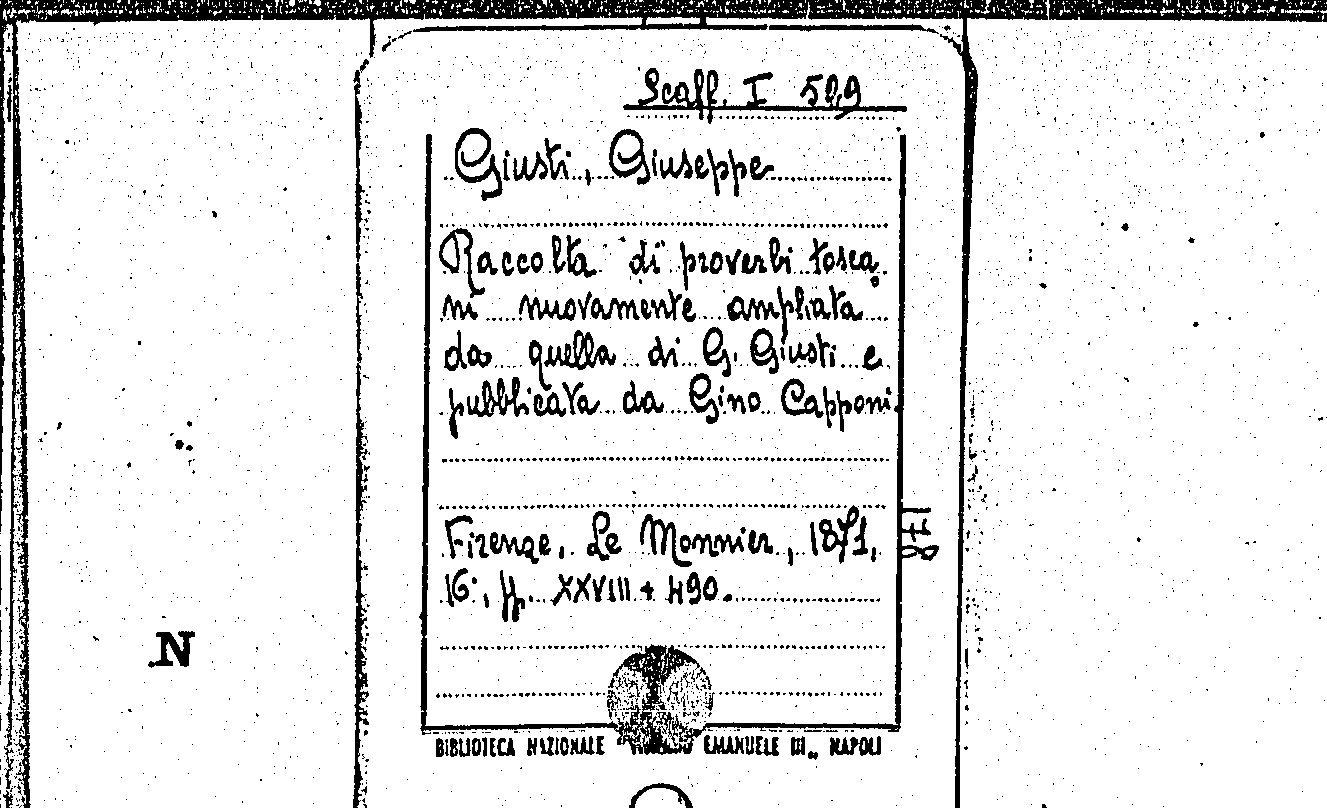 Scaff. I 589
Giusti, Giuseppe
Raccolta di proverbi tosca
ni nuovamente ampliata
da quella di G. Giusti e
pubblicata da Gino Capponi.
Firenze, Le Monnier, 1871,
16°, pp. XXVIII + 490.
178
N
BIBLIOTECA NAZIONALE " EMANUELE III„ NAPOLI